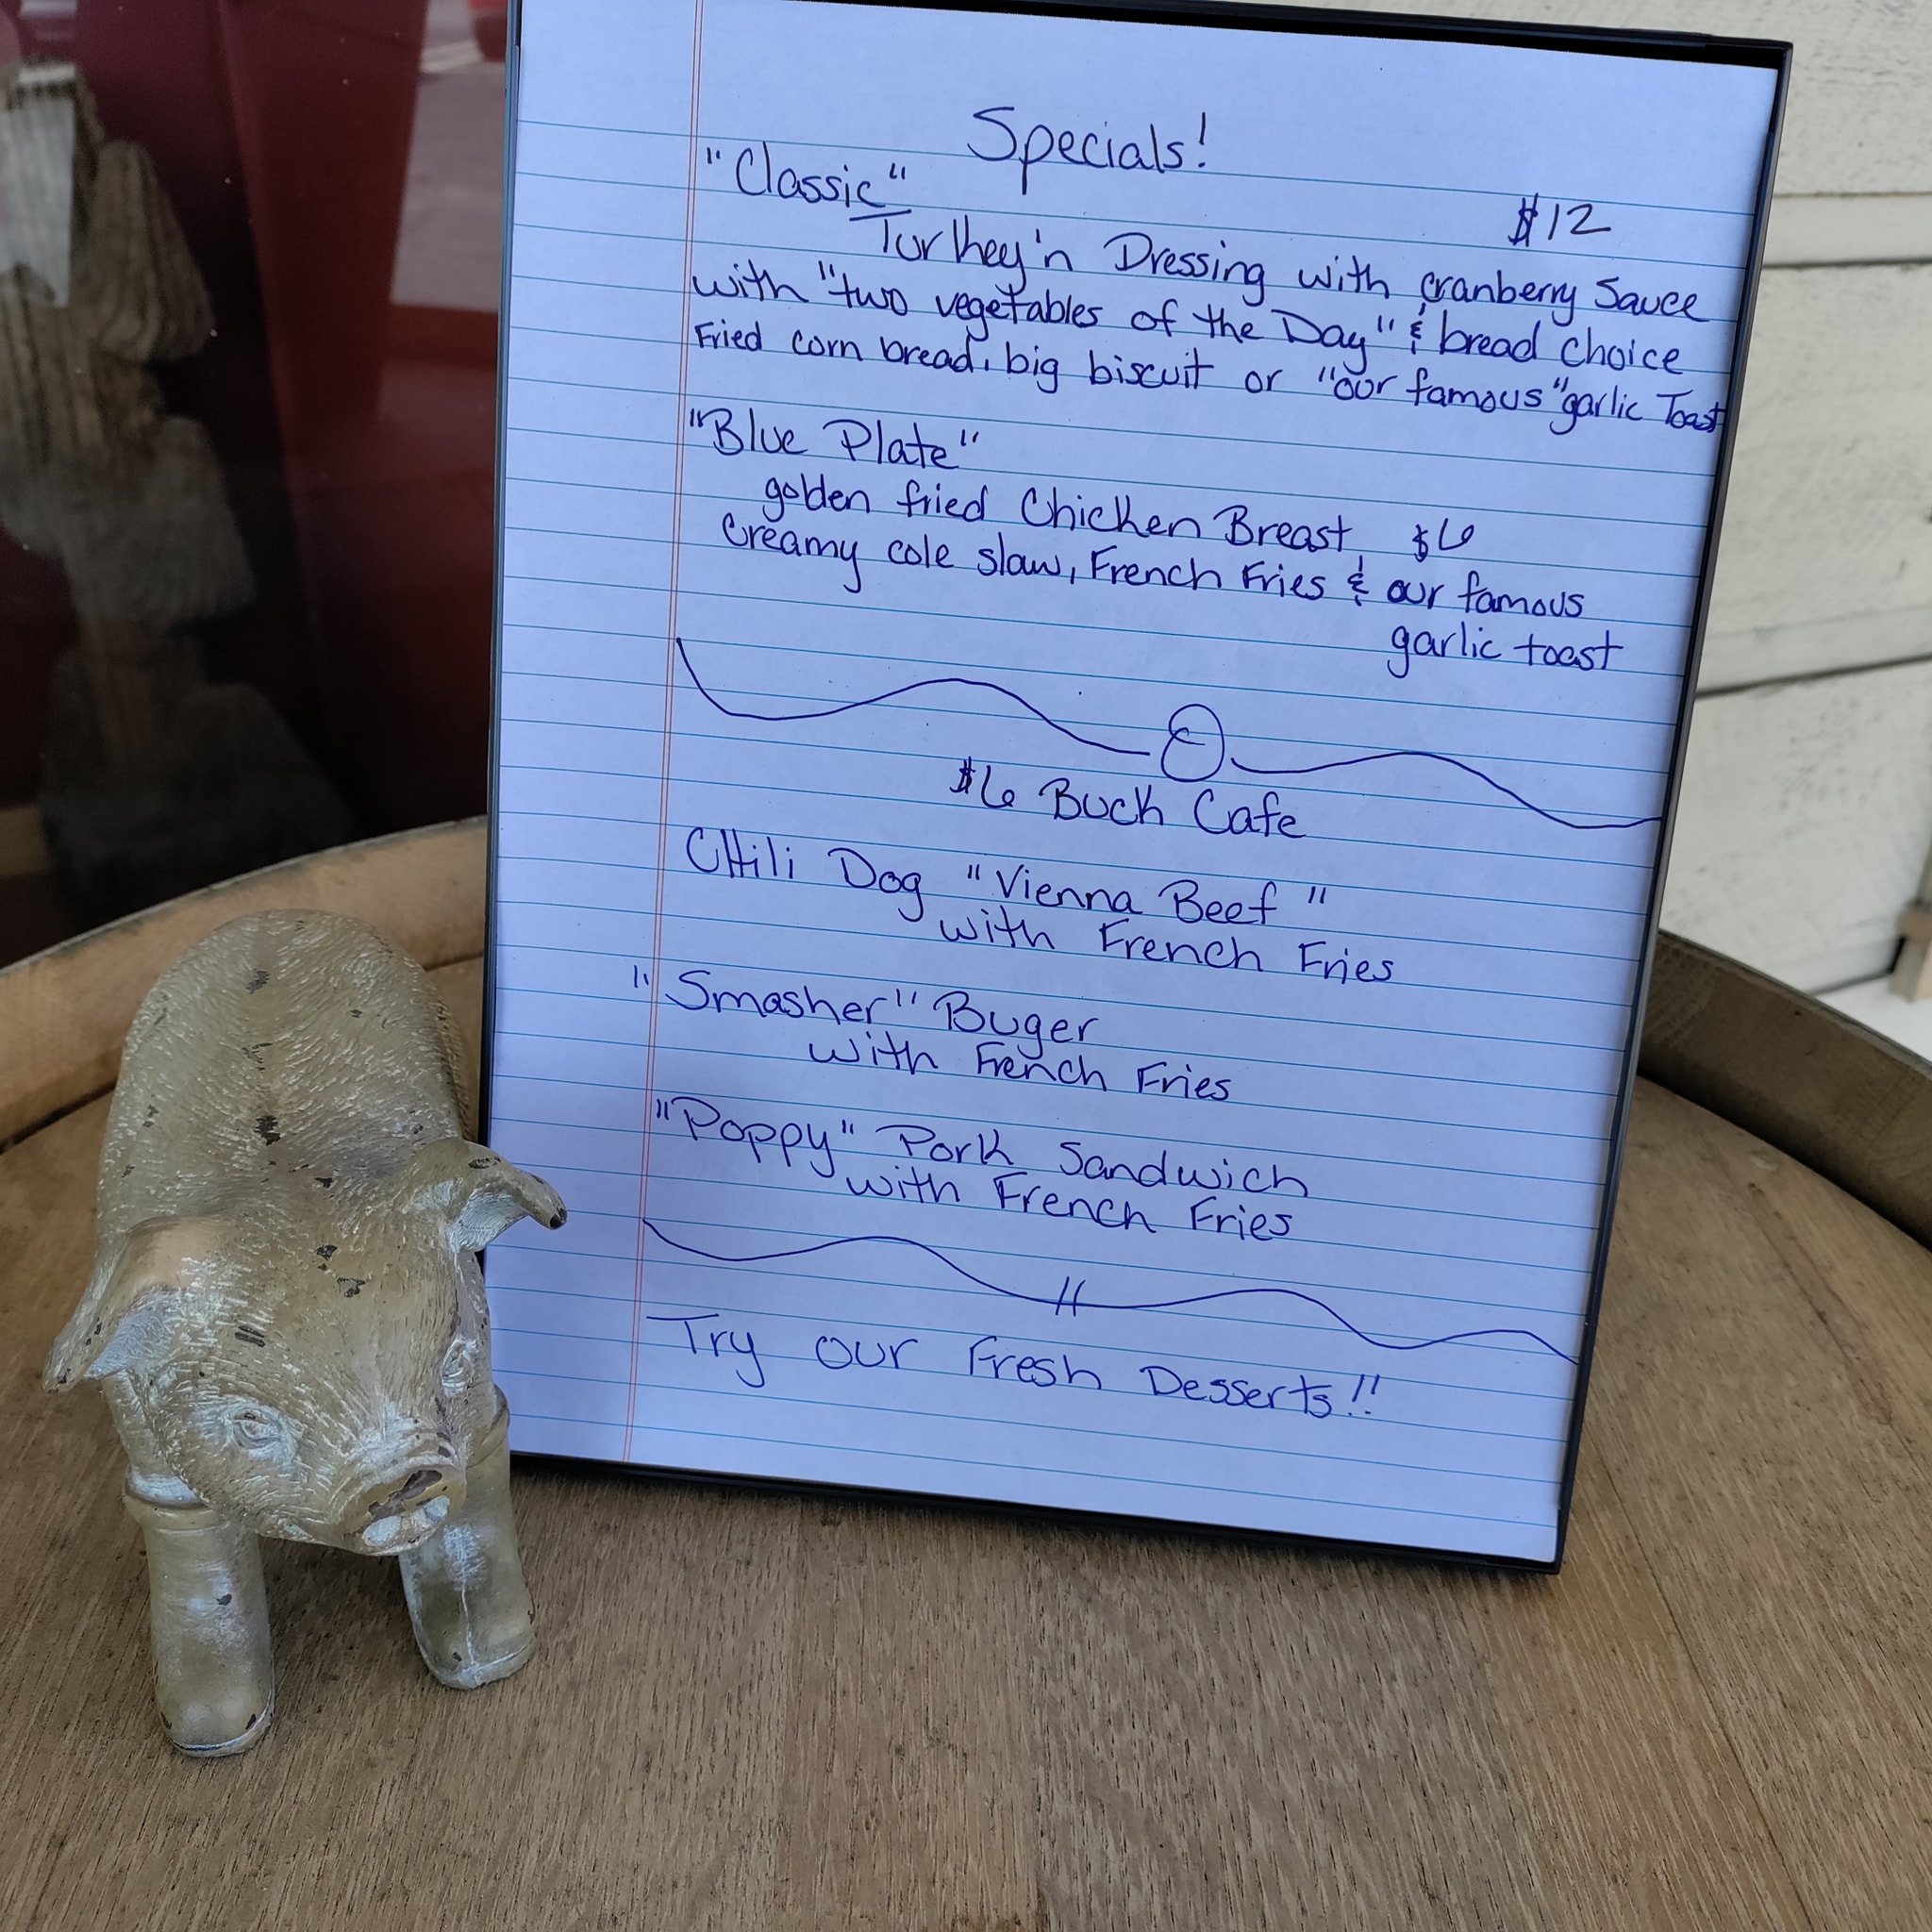 Specials!
"Classic" $12
Turkey'n Dressing with cranberry Sauce
with "two vegetables of the Day" & bread choice
Fried corn bread, big biscuit or "our famous" garlic Toast
"Blue Plate"
golden fried Chicken Breast, $6
Creamy cole slaw, French Fries & our famous
garlic toast
$6 Buck Cafe
CHili Dog "Vienna Beef"
with French Fries
"Smasher" Buger
with French Fries
"Poppy" Pork Sandwich
with French Fries
Try our Fresh Desserts!!